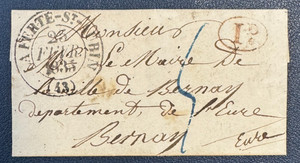 LA FERTÉ-ST-AUBIN
FEVR
1835
(43)
Monsieur
Le Maire de
Ville de Bernay
departement de l'Eure
Bernay
Eure